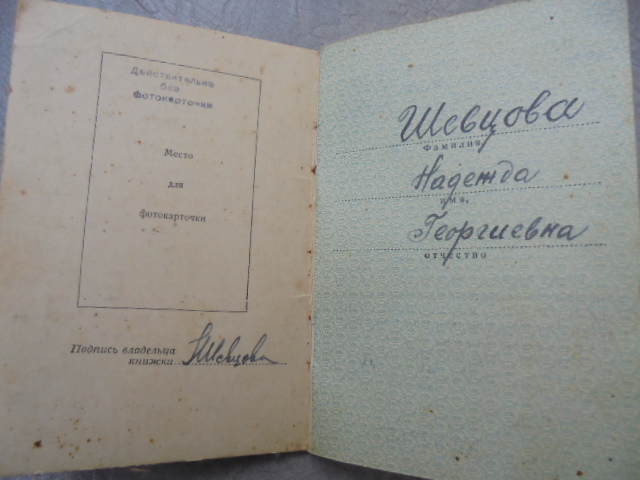 Действительна
без
фотокарточки
Место
для
фотокарточки
Подпись владельца
книжки НШевцова
Шевцова
Фамилия
Надежда
имя,
Георгиевна
отчество